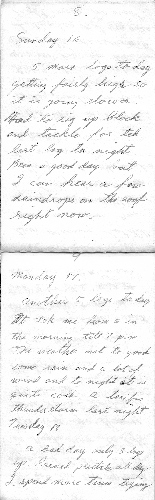 8.
Sunday 16.
5 more logs to day
getting fairly high so
it is going slower.
Had to rig up block
and tackle for the
last log to night.
Been a good day but
I can hear a few
raindrops on the roof
right now.
9
Monday 17.
Another 5 logs to day
It took me from 8 in
the morning till 7 pm
The weather not to good
some rain and a lot of
wind and to night it is
quite cold. a terrific
thunderstorm last night
Tuesday 18
a bad day only 3 logs
up. I spend more time trying